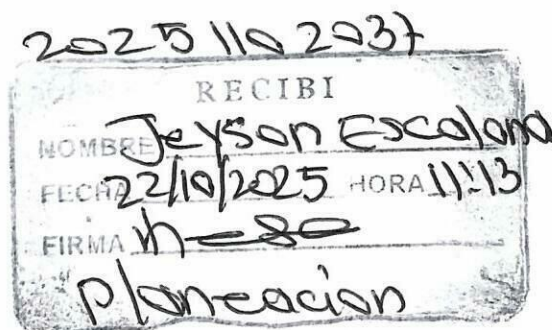 2025110 2037
RECIBI
NOMBRE Jeyson Escalona
FECHA 22/10/2025 HORA 11:13
FIRMA
Planeacion